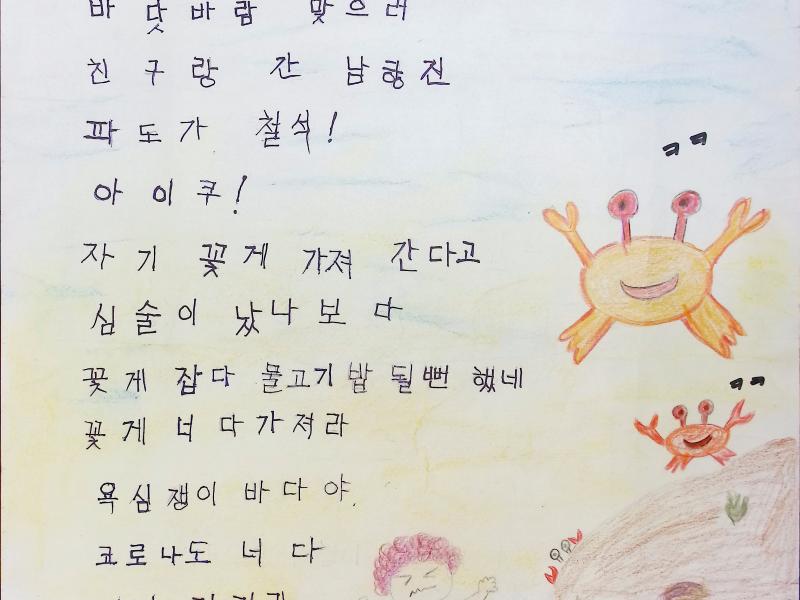 바닷바람 맞으러
친구랑 간 남항진
파도가 철석!
ㅋㅋ
아이쿠!
자기 꽃게 가져 간다고
심술이 났나 보다
꽃게 잡다 물고기 밥 될뻔 했네
ㅋㅋ
꽃게 너 다 가져라
욕심쟁이 바다야.
코로나도 너 다